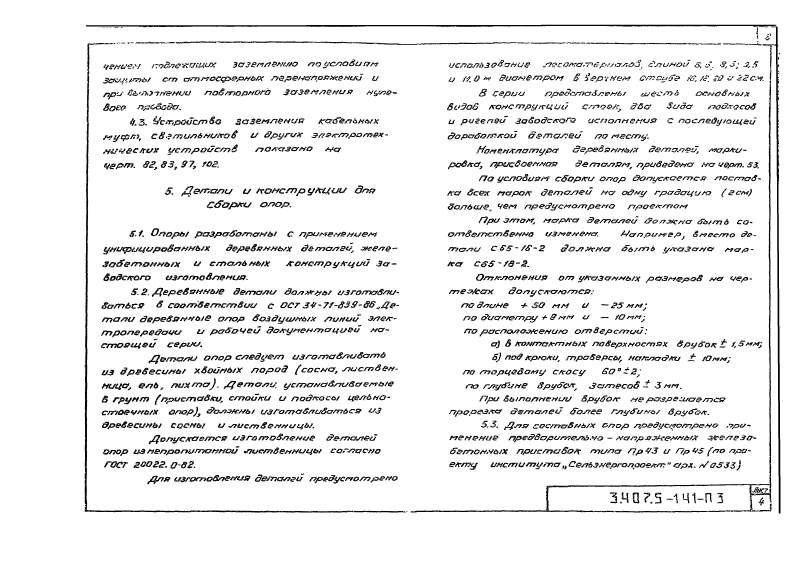 8
чением подлежащих заземлению по условиям
защиты от атмосферных перенапряжений и
при выполнении повторного заземления нуле-
вого провода.
4.3. Устройство заземления кабельных
муфт, светильников и других электротех-
нических устройств показано на
черт. 82, 83, 97, 102.
5. Детали и конструкции для
сборки опор.
5.1. Опоры разработаны с применением
унифицированных деревянных деталей, желе-
забетонных и стальных конструкций за-
водского изготовления.
5.2. Деревянные детали должны изготавли-
ваться в соответствии с ОСТ 34-71-839-86 „Де-
тали деревянные опор воздушных линий элек-
тропередачи и рабочей документацией на-
стоящей серии.
Детали опор следует изготавливать
из древесины хвойных пород (сосна, листвен-
ница, ель, пихта). Детали, устанавливаемые
в грунт (приставки, стойки и подкосы цельно-
стоечных опор), должны изготавливаться из
древесины сосны и лиственницы.
Допускается изготовление деталей
опор из непропитанной лиственницы согласно
ГОСТ 20022.0-82.
Для изготовления деталей предусмотрено
использование лесоматериалов, длиной 9,5
и 11,0 м диаметром в верхнем отрубе 16, 18, 20 и 22 см.
В серии представлены шесть основных
видов конструкций стоек, два вида подкосов
и ригелей заводского исполнения с последующей
доработкой деталей по месту.
Номенклатура деревянных деталей, марки-
ровка, присвоенная деталям, приведена на черт. 53.
По условиям сборки опор допускается постав-
ка всех марок деталей на одну градацию (2 см)
больше, чем предусмотрено проектом
При этом, марка деталей должна быть со-
ответственно изменена. Например, вместо де-
тали С65-16-2 должна быть указана мар-
ка С65-18-2.
Отклонения от указанных размеров на чер-
тежах допускаются:
по длине + 50 мм и – 25 мм;
по диаметру + 8 мм и – 10 мм;
по расположению отверстий:
а) в контактных поверхностях врубок ± 1,5 мм;
б) под крюки, траверсы, накладки ± 10 мм;
по торцевому скосу 60° ± 2;
по глубине врубок, затесов ± 3 мм.
При выполнении врубок не разрешается
прорезка деталей более глубины врубок.
5.3. Для составных опор предусмотрено при-
менение предварительно – напряженных железо-
бетонных приставок типа Пр 43 и Пр 45 (по про-
екту института „Сельэнергопроект" арх. №0533)
3.407.5-141-П3
Лист
4